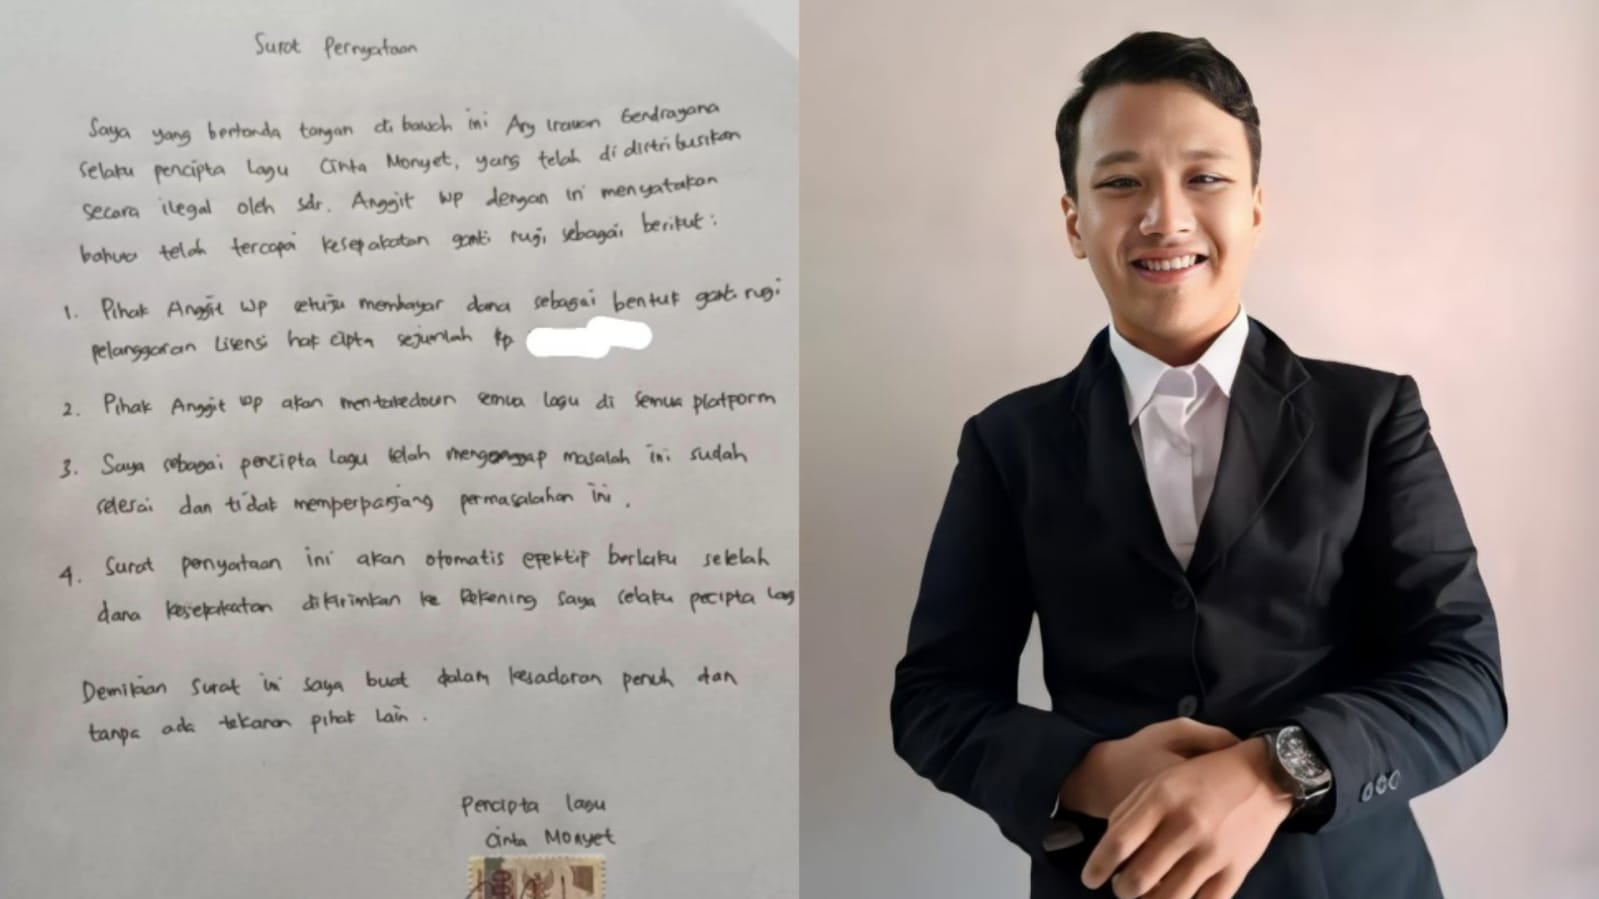 Surat Pernyataan
Saya yang bertanda tangan di bawah ini Ary Irawan Gendrayana
selaku pencipta lagu Cinta Monyet, yang telah di distribusikan
secara ilegal oleh sdr. Anggit WP dengan ini menyatakan
bahwa telah tercapai kesepakatan ganti rugi sebagai berikut :
1. Pihak Anggit WP setuju membayar dana sebagai bentuk ganti rugi
pelanggaran Lisensi hak cipta sejumlah Rp
2. Pihak Anggit WP akan mentakedown semua lagu di semua platform
3. Saya sebagai pencipta lagu telah menganggap masalah ini sudah
selesai dan tidak memperpanjang permasalahan ini .
4. Surat penyataan ini akan otomatis efektif berlaku setelah
dana kesepakatan dikirimkan ke Rekening saya selaku pecipta lag
Demikian surat ini saya buat dalam kesadaran penuh dan
tanpa ada tekanan pihak lain .
Pencipta lagu
Cinta Monyet